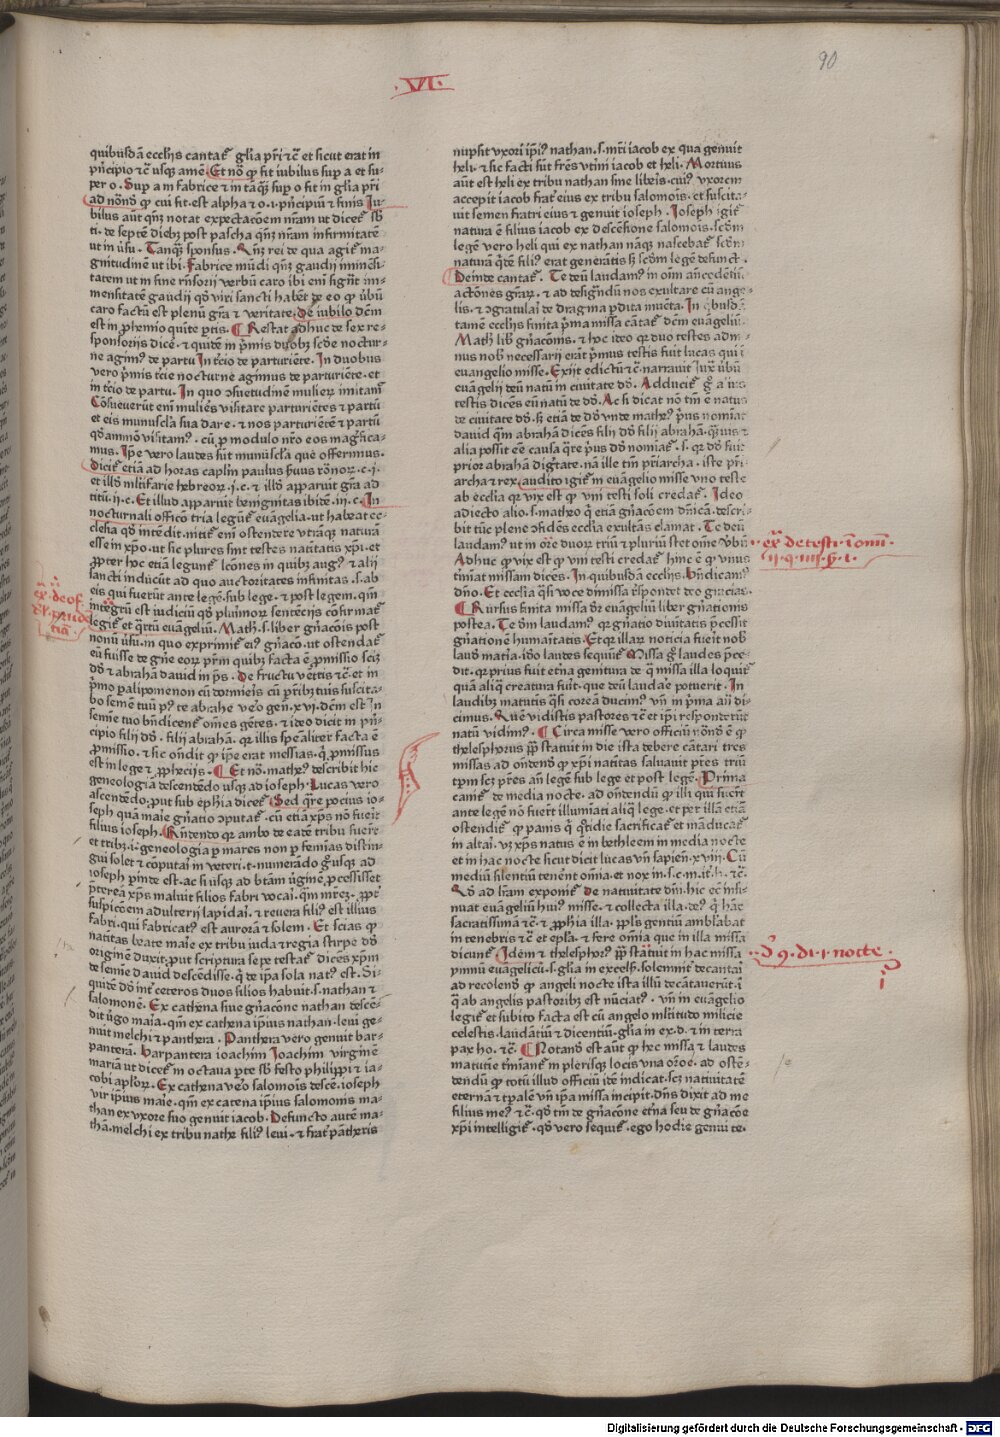 90
·VI·
quibusdā ecclijs cantat᷑ gl̄ia pr̄i ⁊c̄ et sicut erat in
pn̄cipio ⁊c̄ usqȝ amē. Et nō ꝙ fit iubilus sup a et su-
per o. Sup a in fabrice ⁊ in tāqȝ sup o fit in gl̄ia pr̄i
ad nōnō ꝙ cui fit. est alpha ⁊ o. i. pn̄cipiū ⁊ finis Iu-
bilus aūt qn̄ȝ notat expectacōem nr̄am ut dicet᷑ sb̄
ti. de septē diebȝ post pascha qn̄ȝ nr̄am infirmitatē
ut in ūsu. Tanqȝ sponsus. Qn̄ȝ rei de qua agit᷑ ma-
gnitudinē ut ibi. Fabrice mūdi qn̄ȝ gaudij īmensi-
tatem ut in fine rn̄sorij verbū caro ibi eni᷑ fign̄t im-
mensitatē gaudij qd̓ viri sancti habēt de eo ꝙ ūbū
caro factū est plenū gr̄a ⁊ veritate. De iubilo dēm
est in ꝓhemio quīte ꝑtis. Restat adhuc de sex re-
sponsorijs dicē. ⁊ quidē in pͥmis duobȝ scd̄e noctur-
ne agimꝰ de partu In tͥcio de parturiēte. In duobus
vero pͥmis tͥcie nocturne agimus de parturiēte. et
in tͥcio de partu. In quo ɔsuetudinē mulieꝝ imitam᷑
Cōsueverūt eni᷑ muliēs visitare parturiētes ⁊ partū
et eis munuscl̄a sua dare. ⁊ nos parturiētē ⁊ partū
qd̓ āmō visitamꝰ. cū ꝓ modulo nr̄o eos magͥfica-
mus. Ip̄e vero laudes sūt munuscl̄a que offerimus.
Dicit᷑ etiā ad horas caplm̄ paulus ẜuus rōnoꝝ. c. j.
et illd̓ mltifarie hebreoꝝ. j. c. ⁊ illd̓ apparuit gr̄a ad
titū. ij. c. Et illud apparuit benignitas ibidē. iij. c. In
nocturnali officō tria legunt᷑ euāgelia. ut habeat ec-
clesia qd̓ intēdit. nitit᷑ eni᷑ ostendere vtrāqȝ naturā
esse in xp̄o. ut sic plures sint testes natītatis xp̄i. et
ꝓpter hoc etiā legunt᷑ lcōnes in quibȝ augꝰ ⁊ alij
sancti inducūt ad quo auctoritates infinitas. s. ab
eis qui fuerūt ante legē. sub lege. ⁊ post legem. qm̄
integrū est iudiciū qd̓ plurimoꝝ sentēcijs cōfirmat᷑
legit᷑ et qͣrtū euāgeliū. Math. s. liber gn̄acōis post
nonū ūsum. in quo exprimit᷑ eiꝰ gn̄aco. ut ostendat᷑
eū fuisse de gn̄e eoꝝ pr̄m quibȝ facta ē ꝓmissio scȝ
dd̓ ⁊ abrahā dauid in ps̄. De fructu vētris ⁊c̄. et in
pͥmo palipomenon cū dormieīs cū pr̄ibȝ tuis suscita-
bo semē tuū pꝰ te abrahe veͦo gen. xvi. dēm est In
semīe tuo bn̄dicent᷑ om̄es gētes. ⁊ ideo dicit in pn̄-
cipio filij dd̓. filij abrahā. qꝛ illis spēaliter facta ē
ꝓmissio. ⁊ sic on̄dit ꝙ ip̄e erat messias. qͥ ꝓmissus
est in lege ⁊ ꝓphecijs. Et nō. matheꝰ describit hic
geneologiā descendēdo usqȝ ad ioseph. Lucas vero
ascendēdo, put sub epīphīa dicet᷑. Sed qͣre pocius io-
seph quā maīe gn̄atio ɔputat᷑. cū etiā xp̄s nō fuerit
filius ioseph. Rn̄dendo qꝛ ambo de eadē tribu fuerē
et tribȝ. i. geneologia ꝑ mares non ꝑ femīas distin-
gui solet ⁊ cōputari in veteri. t. numerādo gͦ usqȝ ad
ioseph perinde est. ac si usqȝ ad btām ūginē ꝓcessisset
pͣterea xp̄s maluit filios fabri vocai᷑. qm̄ mrēȝ. ꝓpt᷑
suspicōem adulterij lapidai᷑. ⁊ reuera filiꝰ est illius
fabri. qui fabricat᷑ est auroꝝā ⁊ solem. Et scias ꝙ
natītas beate maīe ex tribu iuda ⁊ regia stirpe dd̓
originē duxit. put scriptura sepe testat᷑ dicēs xp̄m
de semīe dauid descendisse. qͥ de ip̄a sola natꝰ est. Si-
quidē dd̓ int᷑ ceteros duos filios habuit. s. nathan ⁊
salomonē. Ex cathena siue gn̄acōne nathan descē-
dit ūgo maīa. qm̄ ex cathena ip̄ius nathan. leui ge-
nuit melchi ⁊ panthera. Panthera vero genuit bar-
panterā. Barpantera ioachim Ioachim virginē
mariā ut dicet᷑ in octava ꝑte sb̄ festo philippi ⁊ ia-
cobi apl̓oꝝ. Ex cathena veͦo salomoīs descē. ioseph
vir ip̄ius maīe. qm̄ ex catena ip̄ius salomonis ma-
than ex vxore suo genuit iacob. Defuncto autē ma-
thā. melchi ex tribu nathē filiꝰ leui. ⁊ frat᷑ pātheris
nupsit vxori ip̄iꝰ nathan. s. mr̄i iacob ex qua genuit
heli. ⁊ sic facti sūt fr̄es vtini iacob et heli. Mortuus
aūt est heli ex tribu nathan sine libeīs. cuiꝰ vxorem
accepit iacob frat᷑ eius ex tribu salomoīs. et suscita-
uit semen fratri eius ⁊ genuit ioseph. Ioseph igit᷑
natura ē filius iacob ex descēsione salomoīs. scd̄m
legē vero heli qui ex nathan nāqȝ nascebat᷑ scd̄m
naturā qͥdē filiꝰ erat generātis sȝ scd̄m legē defunct᷑.
Deinde cantat᷑. Te deū laudamꝰ in om̄ an̄cedētiū
actōnes gr̄aꝝ. ⁊ ad designd̄ū nos exultare cū ange-
lis. ⁊ ɔgratulai᷑ de dragma ꝑdita inuēta. In qbusdā
tamē ecclijs finita pͥma missa cātat᷑ dēm euāgeliū.
Math. lib᷑ gn̄acōnis. ⁊ hoc ideo qꝛ duo testes adm̄-
nus nob̄ necessarij erāt pͥmus testis fuit lucas qui ī
euangelio misse. Exijt edictū ⁊c̄. narrauit Iuxͣ ūbū
euāgelij deū natū in ciuitate dd̓. Adducit᷑ gͦ a᷑ ius
testis dicēs eū natū de dd̓. Ac si dicat nō tm̄ ē natus
de ciuitate dd̓. sȝ etiā de dd̓ vnde matheꝰ pͥus nomīat
dauid qm̄ abrahā dicēs filij dd̓ filij abrahā. qͣȝuis ⁊
alia possit eē causa qͣre pͥus dd̓ nomīat᷑. s. qꝛ dd̓ fuit
prior abrahā digͥtate. nā ille tm̄ pr̄iarcha. iste pr̄i-
archa ⁊ rex. audito igit᷑ in euāgelio misse vno teste
ab ecclīa qꝛ vix est ꝙ vni testi soli credat᷑. Ideo
adiecto alio. s. matheo qͥ etiā gn̄acōem dn̄icā. descri-
bit tūc plene ɔfidēs ecclīa exultās clamat. Te deū
laudamꝰ ut in oͬe duoꝝ triū ⁊ pluriū stet om̄e ūbū
Adhuc ꝙ vix est ꝙ vni testi credat᷑ hinc ē ꝙ vnus
tm̄iat missam dicēs. In quibusdā ecclijs. Bn̄dicamꝰ
dn̄o. Et ecclīa qͣsi voce dimissa rn̄spondet deo gracias.
Rursus finita missa dr̄ euāgeliū liber gn̄ationis
postea. Te dm̄ laudamꝰ. qꝛ gn̄atio diuītatis pͣcessit
gn̄ationē humaītatis. Etqꝛ illaꝝ noticia fuerit nob̄
laud̓ matīa. id̓o laudes sequūt᷑ Missa gͦ laud̓es pͣce-
dit. qꝛ prius fuit etn̄a genitura de qͣ missa illa loquit᷑
quā aliqͣ creatura fuit. que deū laudare potuerit. In
laudibȝ matutis qͣsi coreā ducimꝰ. vn̄ in pͥma an̄ di-
cimus. Quē vidistis pastores ⁊c̄ et ip̄i responderūt
natū vidimꝰ. Circa misse vero officiū nōnd̓ ē ꝙ
thelesphorus pp̄ statuit in die ista debere cātari tres
missas ad ondend̓ ꝙ xp̄i natitas saluauit pr̄es triū
tpm̄ scȝ pr̄es an̄ legē sub lege et post legē. Prima
canit᷑ de media nocte. ad ondendū ꝙ illi qui fuerūt
ante legē nō fuer̄t illumīati aliqͣ lege. et per illā etiā
ostendit᷑ ꝙ panis qͥ qͦtidie sacrificat᷑ et māducat᷑
in altai᷑. uȝ xp̄s natus ē in bethleem in media nocte
et in hac nocte sicut dicit lucas vn̄ sapien. xviij. Cū
mediū silentiū tenēnt om̄ia. et nox in. s. c. m. it. h. ⁊c̄.
Qd̓ ad lr̄am exponit᷑ de natiuitate dn̄i. hic ec̄ insi-
nuat euāgeliū huiꝰ misse. ⁊ collecta illa. deꝰ qͥ hāc
sacratissimā ⁊c̄. ⁊ ꝓphīa illa. ppl̄s gentiū ambl̄abat
in tenebris ⁊c̄ et epl̄a. ⁊ fere om̄ia que in illa missa
dicunt᷑. Idem ⁊ thelesphorꝰ pp̄ statuit in hac missa
ymnū euāgelicū. s. gl̄ia in excels̄. solemnit᷑ decantai᷑
ad recolend̓ ꝙ angeli nocte ista illū decātauerūt. ī
qͣ ab angelis pastoribȝ est nūciat᷑. vn̄ in euāgelio
legit᷑ et subito facta est cū angelo mltitudo milicie
celestis. laudātiū ⁊ dicentiū. gl̄ia in ex. d. ⁊ in terra
pax ho. ⁊c̄. Notand̓ est aūt ꝙ hec missa ⁊ laudes
matutīe tm̄iant᷑ in plerisqȝ locis vna or̄oē. ad ostē-
dendū ꝙ totū illud officiū idē indicat. scȝ natiuitatē
eternā ⁊ tꝑalē vn̄ ip̄a missa incipit. dn̄s dixit ad me
filius meꝰ ⁊c̄. qd̓ tm̄ de gn̄acōne etn̄a seu de gn̄acōe
xp̄i intelligit᷑. qd̓ vero sequit᷑. ego hodie genui te.
ex̄ de of.
ex̄ de testi. ī om̄i.
ij. q. iiij. §. i.
d̄ 9. di. i. nocte.
Digitalisierung gefördert durch die Deutsche Forschungsgemeinschaft - DFG